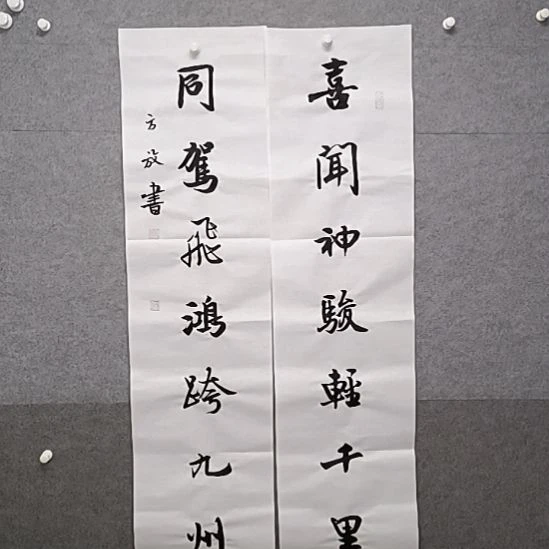 喜聞神駿輕千里
同駕飛鴻跨九州
方放書